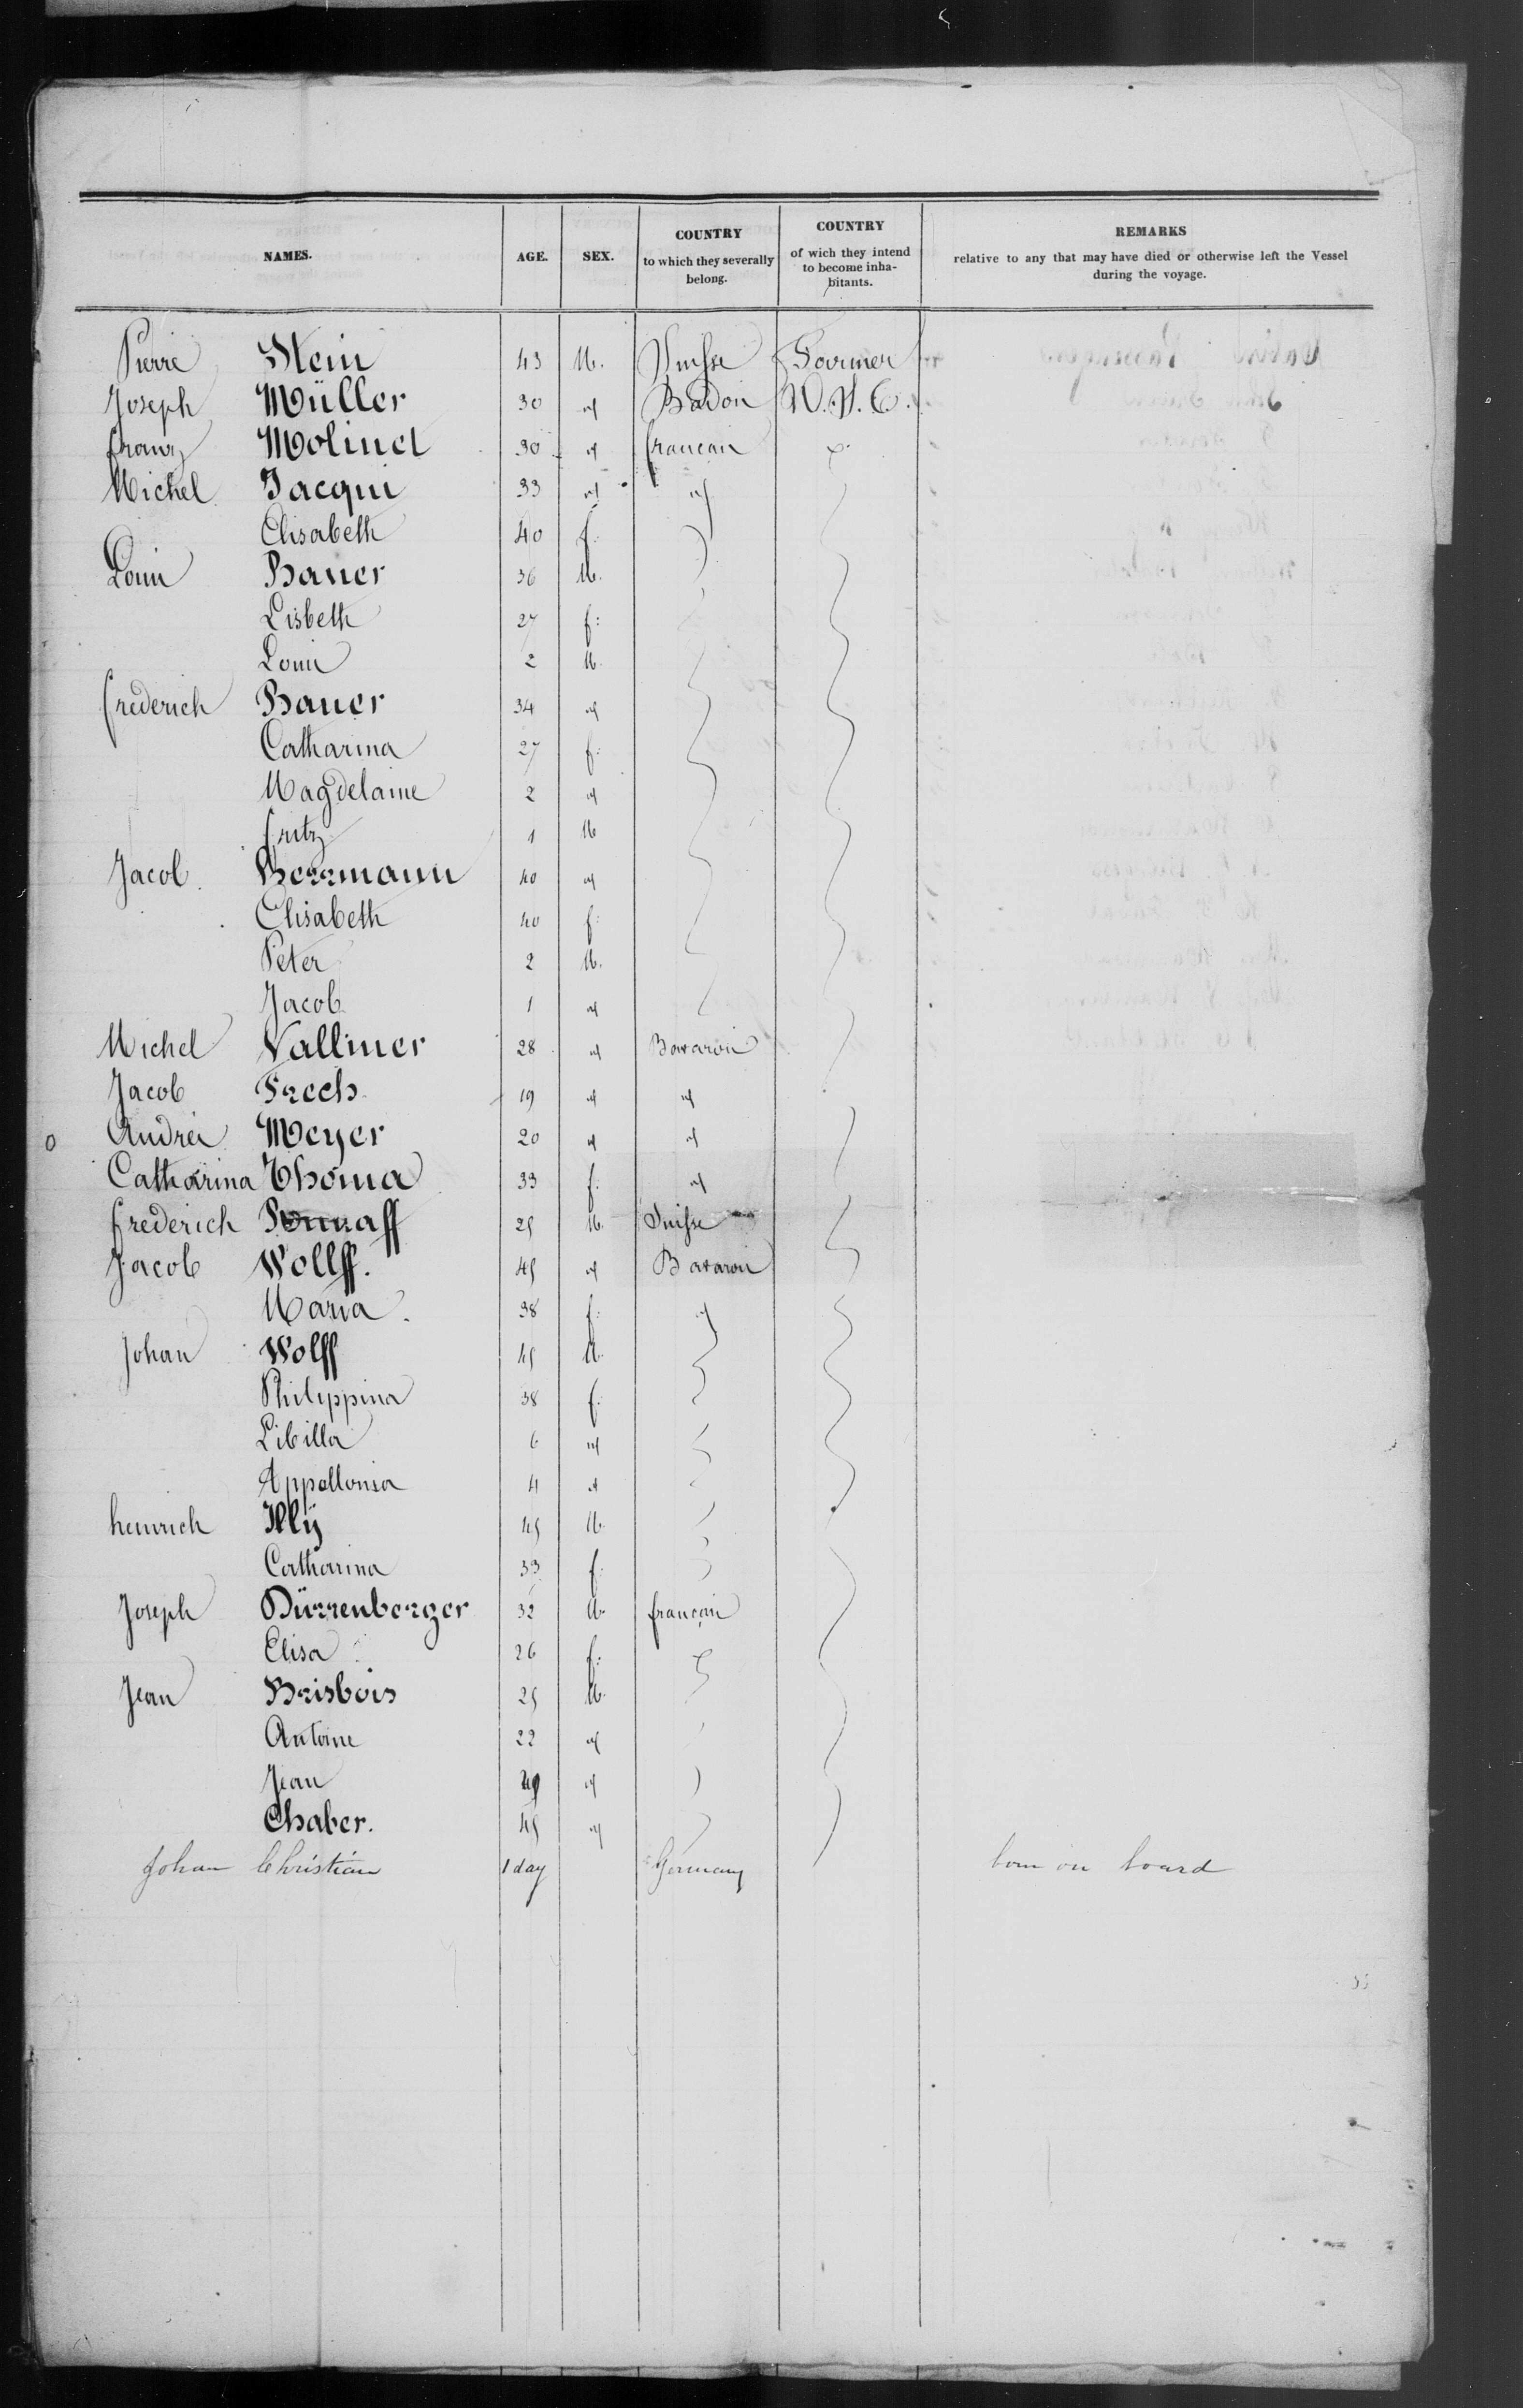 NAMES. AGE. SEX. COUNTRY to which they severally belong. COUNTRY of wich they intend to become inhabitants. REMARKS relative to any that may have died or otherwise left the Vessel during the voyage.
Pierre Stein 43 M. Suisse Farmer
Joseph Müller 30 " Badois
franz Molinet 30 " francais
Michel Jacqui 33 " "
Elisabeth 40 f.
Louis Bauer 36 M.
Lisbeth 27 f:
Louis 2 M.
frederich Bauer 34 "
Catharina 27 f.
Magdelaine 2 "
fritz 1 M
Jacob Herrmann 40 "
Elisabeth 40 f.
Peter 2 M.
Jacob 1 "
Michel Vallmer 28 " Bavarois
Jacob Frech 19 " "
Andrea Meyer 20 " "
Catharina Thoma 33 f. "
frederich 25 M. Suisse
Jacob Wollff. 45 " Bavarois
Maria. 38 f. "
Johan Wolff 45 M.
Philippina 38 f.
Libilla 6 "
Appollonia 4 "
heinrich Illÿ 45 M.
Catharina 33 f.
Joseph Dürrenberger 32 M. francais
Elisa 26 f.
Jean Brisbois 25 M.
Antoine 22 "
Jean "
Chaber. 45 "
Johan Christian 1 day Germany born on board